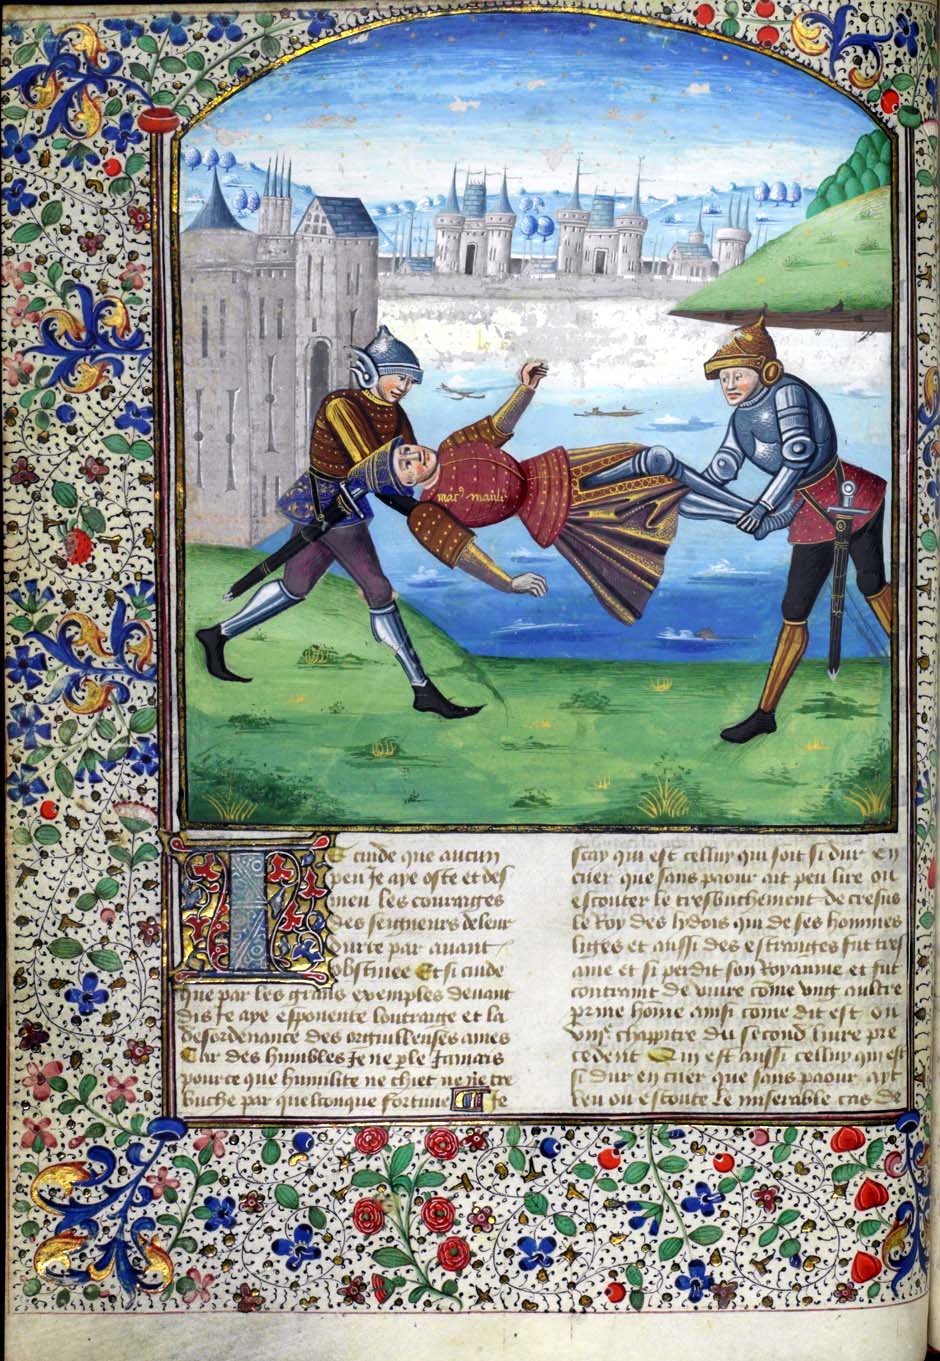 marc9 manli9
Ie cuide que aucun
peu Je aye oste et des
meu les couraiges
des seigneurs de leur
durte par auant
obstinee Et si cuide
que par les grans exemples deuant
dis Je aye exponente loutraige et la
desordenance des orguilleuses ames
Car des humbles Je ne ple Jamais
pource que humilite ne chiet ne ne tre
buche par quelconque fortune Je
scay qui est celluy qui soit si dur en
cuer que sans paour ait peu lire ou
escouter le tresbuchement de cresus
le Roy des lydois qui de ses hommes
liges et aussi des estranges fut tres
ame et si perdit son Royaume et fut
contraint de viure come vng aultre
prime home ainsi come dit est ou
viije chappitre du second liure pre
cedent Qui est aussi celluy qui est
si dur en cuer que sans paour ayt
leu ou escoute le miserable cas de